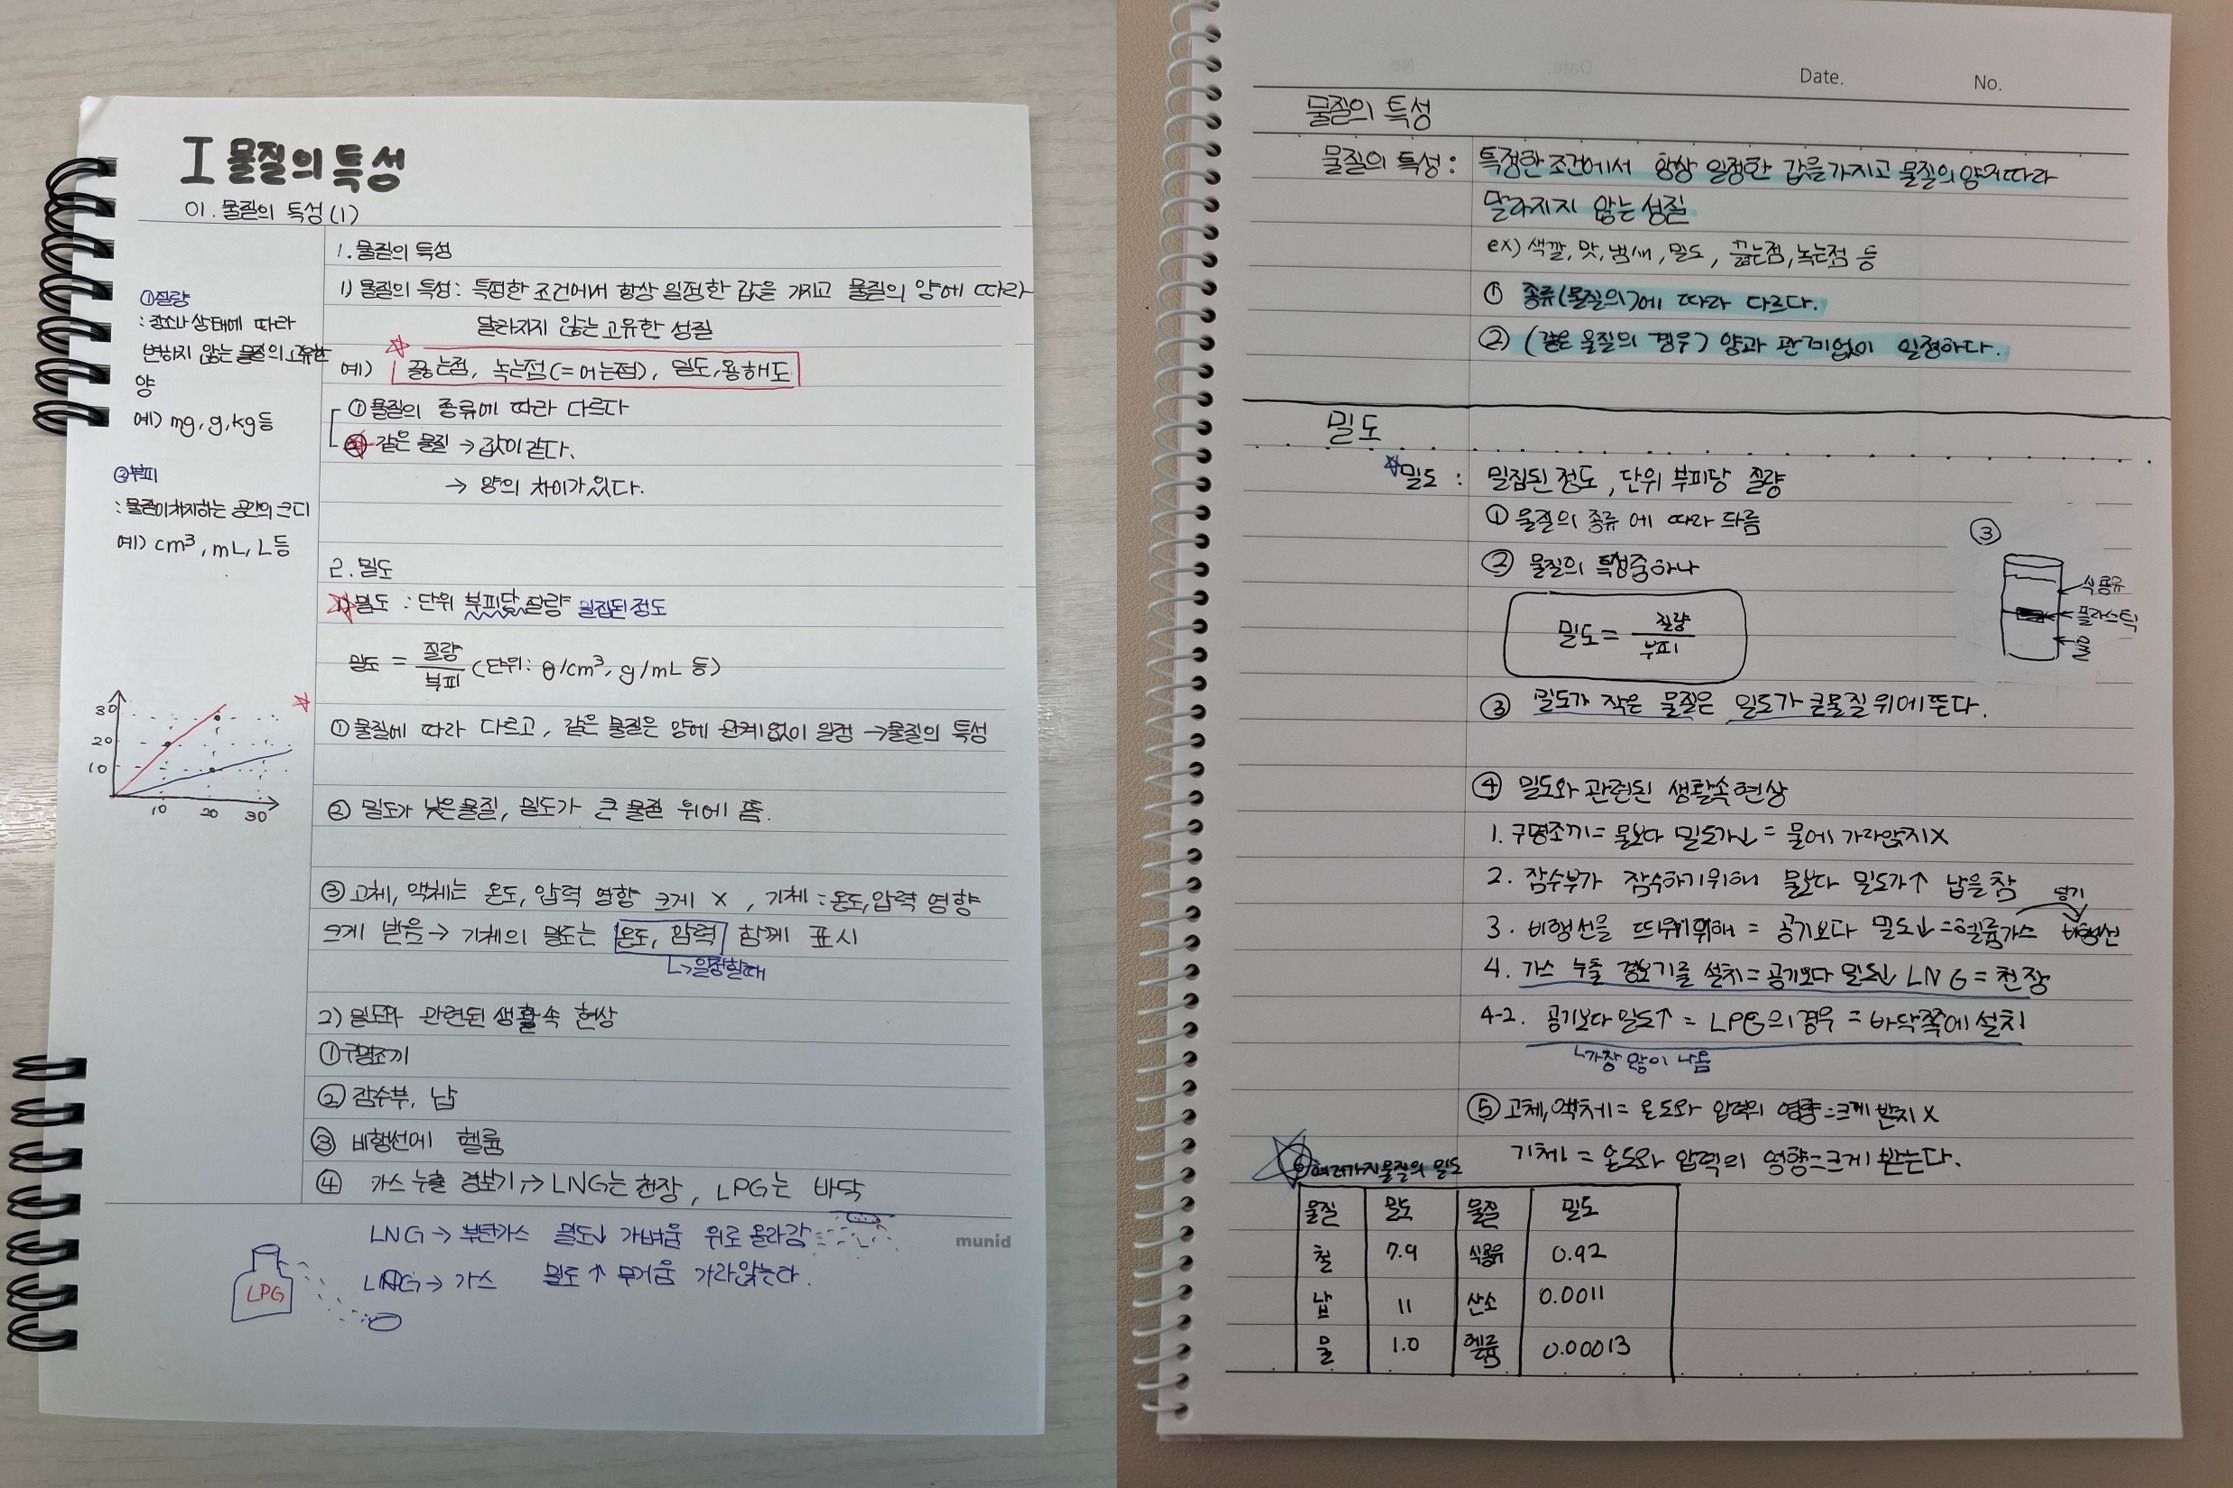 I 물질의 특성
01. 물질의 특성(1)
①질량
: 장소나 상태에 따라
변하지 않는 물질의 고유한
양
예) mg, g, kg 등
②부피
: 물질이 차지하는 공간의 크디
예) cm³, mL, L 등
30
20
10
10 20 30
1. 물질의 특성
1) 물질의 특성 : 특정한 조건에서 항상 일정한 값을 가지고 물질의 양에 따라
달라지지 않는 고유한 성질
예) 끓는점, 녹는점(=어는점), 밀도, 용해도
① 물질의 종류에 따라 다르다
② 같은 물질 → 값이 같다.
→ 양의 차이가 있다.
2. 밀도
1) 밀도 : 단위 부피당 질량 밀집된 정도
밀도 = 질량/부피 (단위: g/cm³, g/mL 등)
① 물질에 따라 다르고, 같은 물질은 양에 관계없이 일정 → 물질의 특성
② 밀도가 낮은 물질, 밀도가 큰 물질 위에 뜸.
③ 고체, 액체는 온도, 압력 영향 크게 X, 기체 : 온도, 압력 영향
크게 받음 → 기체의 밀도는 온도, 압력 함께 표시
↳일정할때
2) 밀도와 관련된 생활속 현상
① 구명조끼
② 잠수부, 납
③ 비행선에 헬륨
④ 가스 누출 경보기 → LNG는 천장, LPG는 바닥
LNG → 부탄가스 밀도↓ 가벼움 위로 올라감
→ 가스 밀도↑ 무거움 가라앉는다.
LPG
munid
Date. No.
물질의 특성
물질의 특성 : 특정한 조건에서 항상 일정한 값을 가지고 물질의 양에 따라
달라지지 않는 성질
ex) 색깔, 맛, 냄새, 밀도, 끓는점, 녹는점 등
① 종류(물질의)에 따라 다르다.
② (같은 물질의 경우) 양과 관계없이 일정하다.
밀도
☆밀도 : 밀집된 정도, 단위 부피당 질량
① 물질의 종류에 따라 다름
② 물질의 특성중하나
밀도 = 질량/부피
③
식용유
플라스틱
물
③ 밀도가 작은 물질은 밀도가 큰물질 위에 뜬다.
④ 밀도와 관련된 생활속현상
1. 구명조끼 = 물보다 밀도가↓ = 물에 가라앉지X
2. 잠수부가 잠수하기위해 물보다 밀도가↑ 납을 참
3. 비행선을 띄우기위해 = 공기보다 밀도↓ = 헬륨가스 넣기 비행선
4. 가스 누출 경보기를 설치 = 공기보다 밀도↓ LNG = 천장
4-2. 공기보다 밀도↑ = LPG의 경우 = 바닥쪽에 설치
↳가장 많이 나옴
⑤ 고체, 액체 = 온도와 압력의 영향 = 크게 받지 X
기체 = 온도와 압력의 영향 = 크게 받는다.
⑥ 여러가지물질의 밀도
물질 밀도 물질 밀도
철 7.9 식용유 0.92
납 11 산소 0.0011
물 1.0 헬륨 0.00013